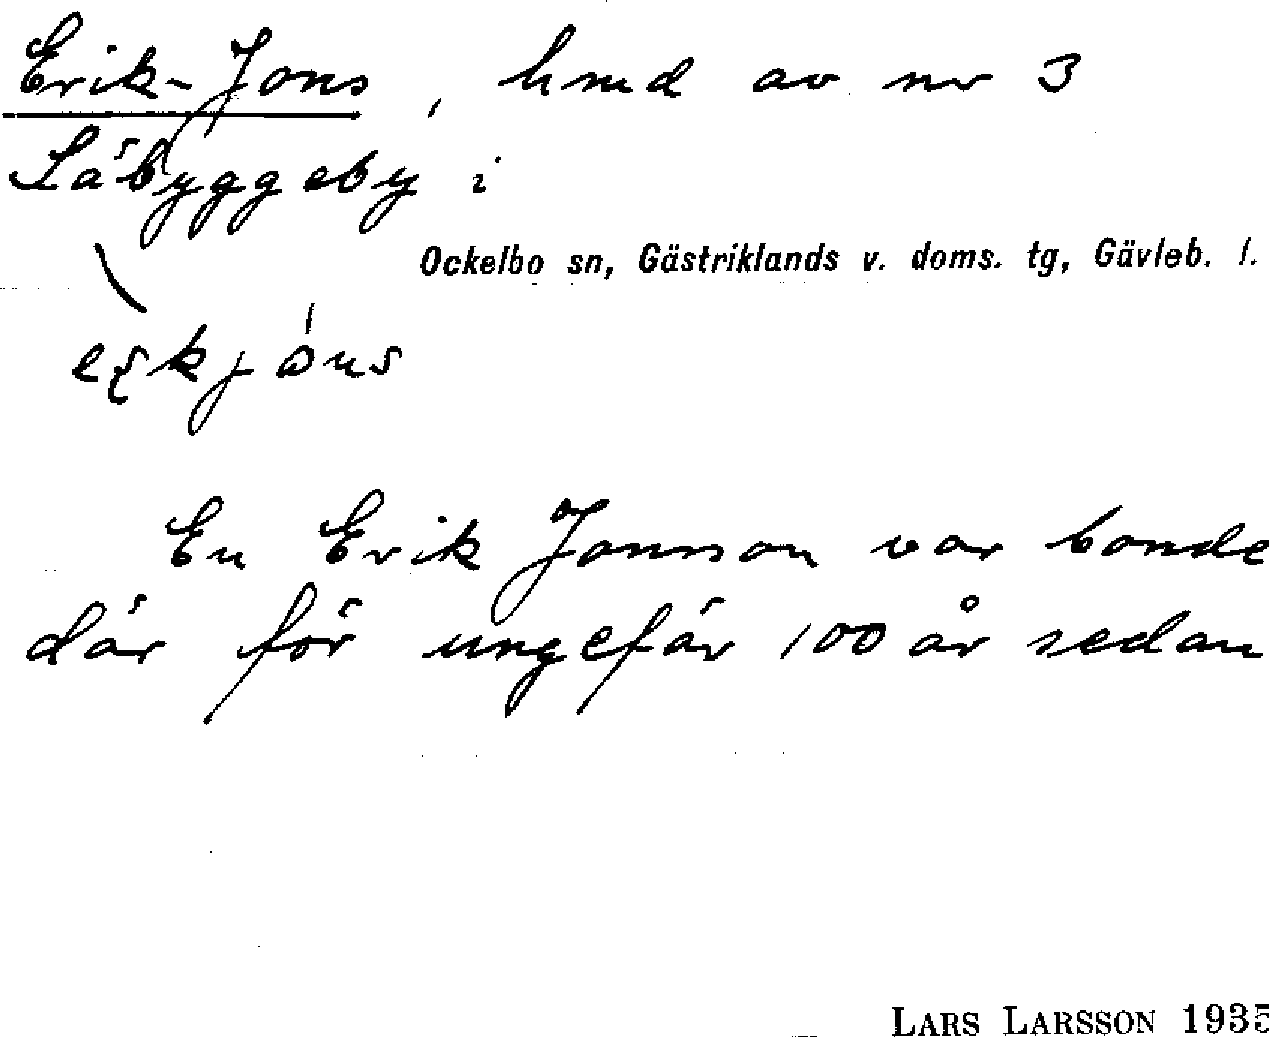 Erik-Jons, hmd av nr 3
Säbyggeby i
Ockelbo sn, Gästriklands v. doms. tg, Gävleb. l.
En Erik Jonsson var bonde
där för ungefär 100 år sedan
LARS LARSSON 1935